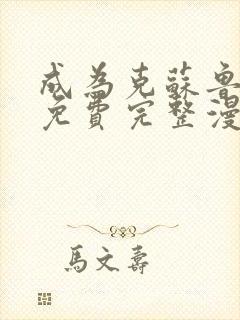 成為克蘇魯
免費完整漫
馬文壽